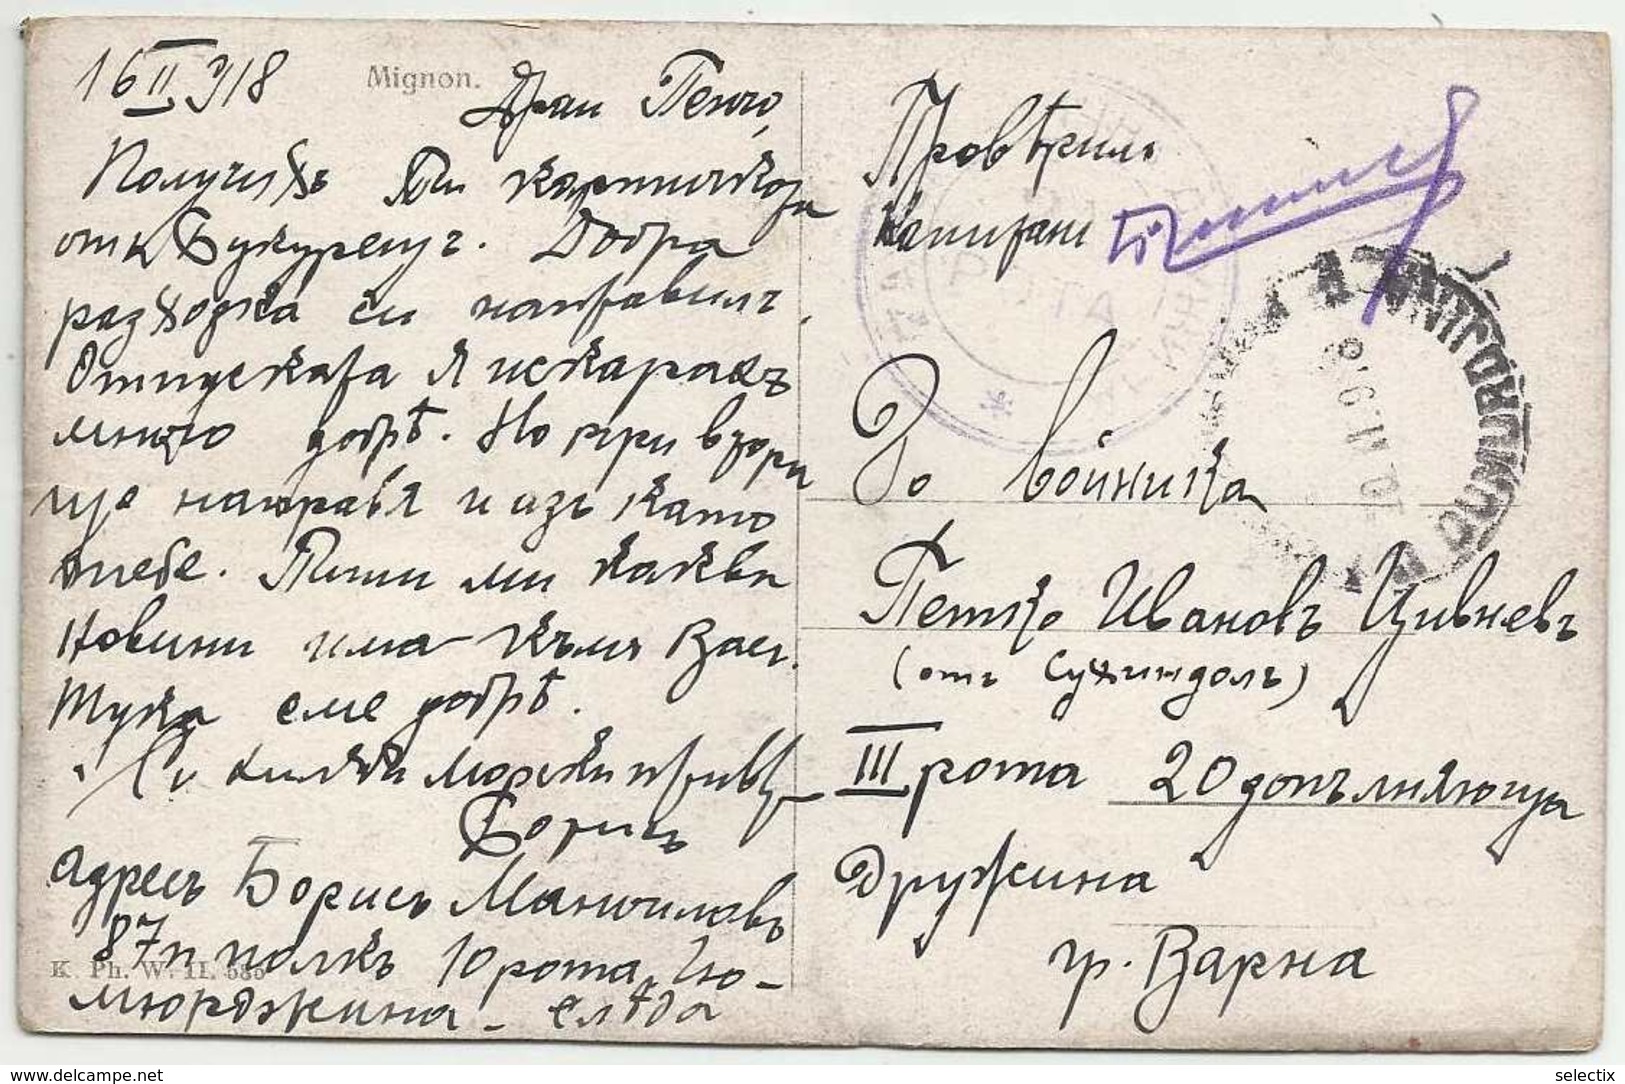 16 II 918
Mignon.
Драги Пенчо,
Получихъ Ти картичката
отъ Букурещъ. Добра
разходка си направилъ.
Отпуската я искарахъ
много добрѣ. Но при втори
ще направя и азъ като
тебе. Пиши ми какви
новини има къмъ Васъ.
Тука сме добрѣ.
морски
Борисъ
Адресъ Борисъ Манчиловъ
87 п полкъ 10 рота, Гю-
мюрджина -
K. Ph. W. II. 585
Провѣрилъ
Капитанъ
До войника
Петко Ивановъ Цивневъ
(отъ Сухиндолъ)
III рота 20 допълняюща
Дружина
гр. Варна
selectix